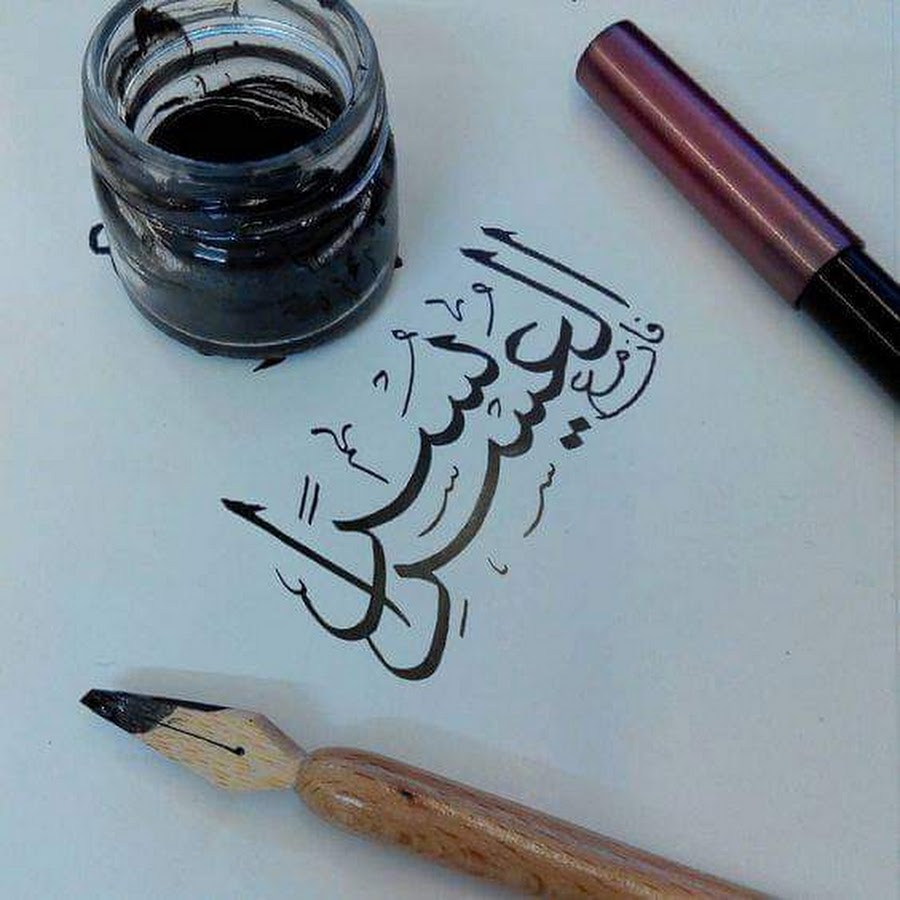 فإن مع العسر يسرا